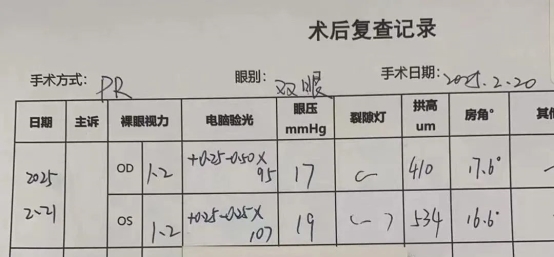 术后复查记录
手术方式: PR 眼别: 双眼 手术日期: 2025.2.20
日期 主诉 裸眼视力 电脑验光 眼压 mmHg 裂隙灯 拱高 um 房角° 其他
2025 2-21 OD 1.2 +0.25-0.50X95 17 (-) 410 17.6°
OS 1.2 +0.25-0.25X107 19 (-) 534 16.6°